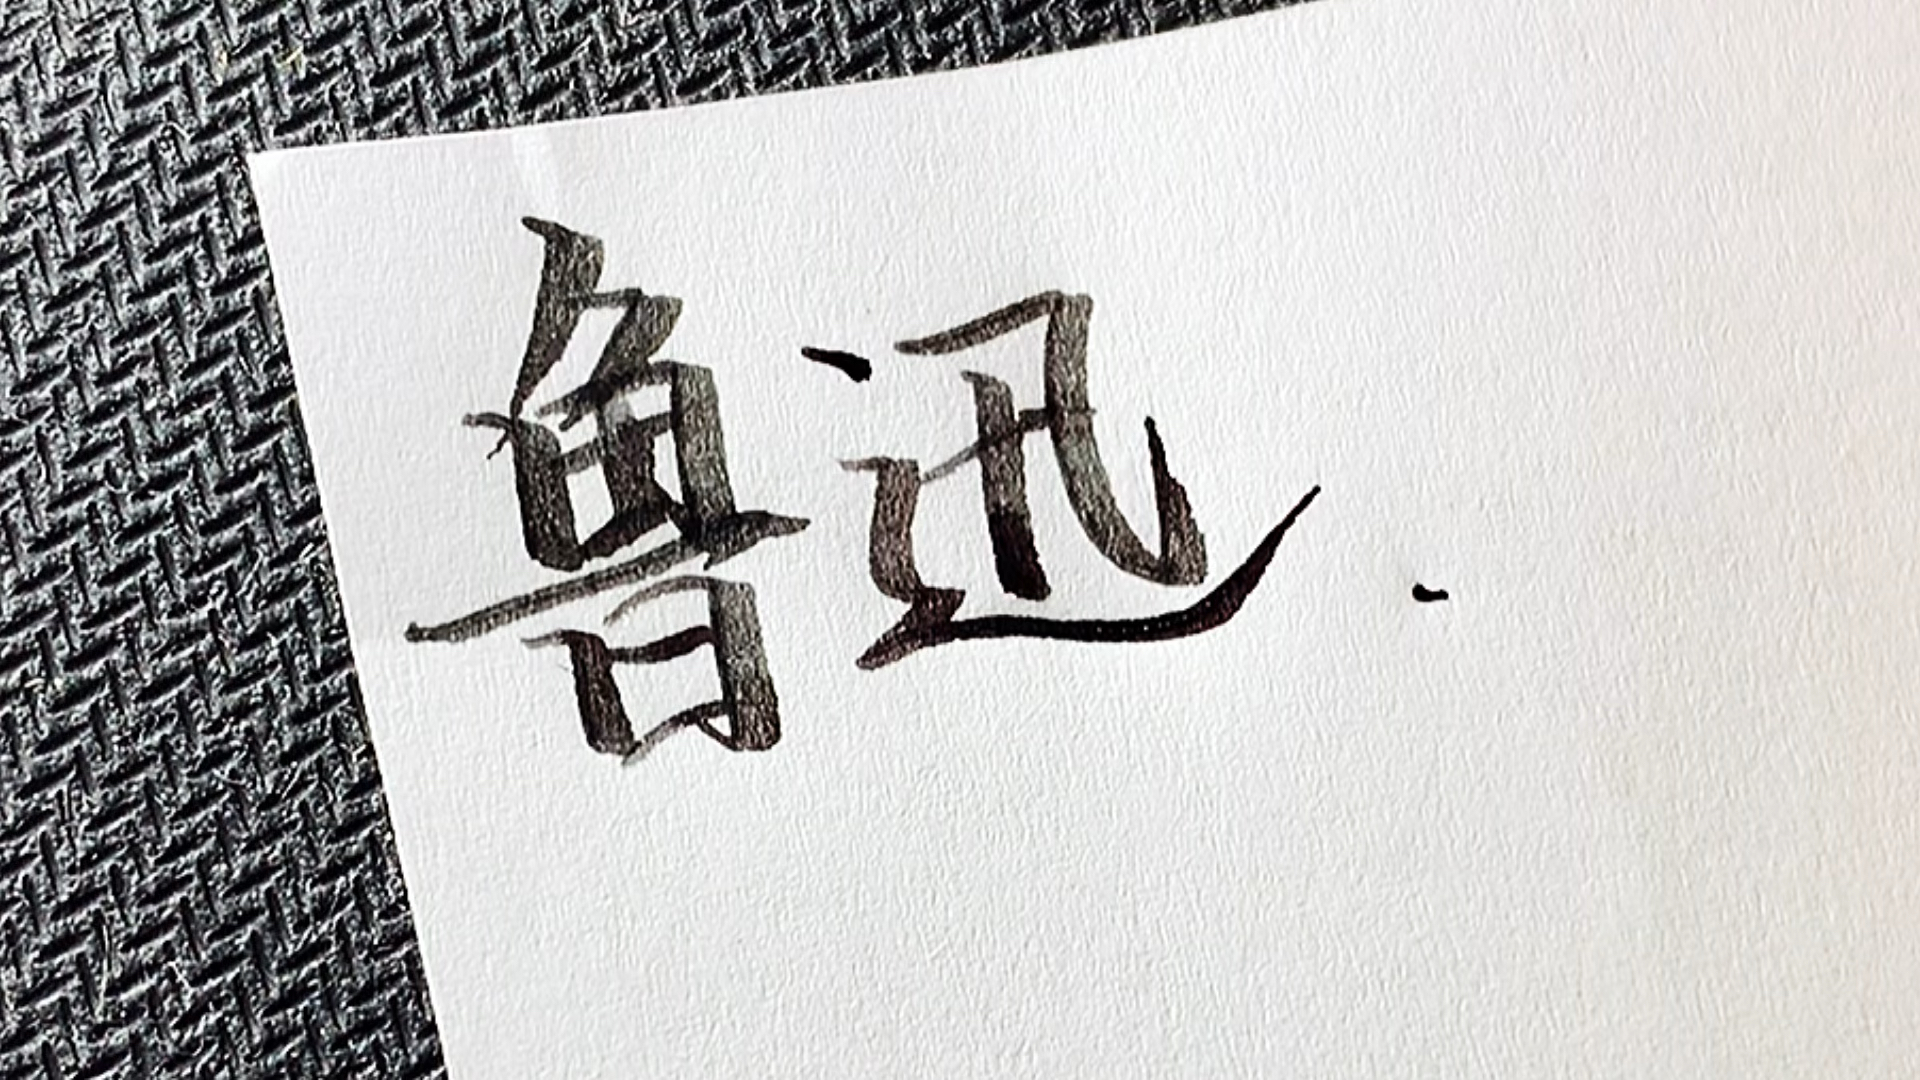 鲁迅.